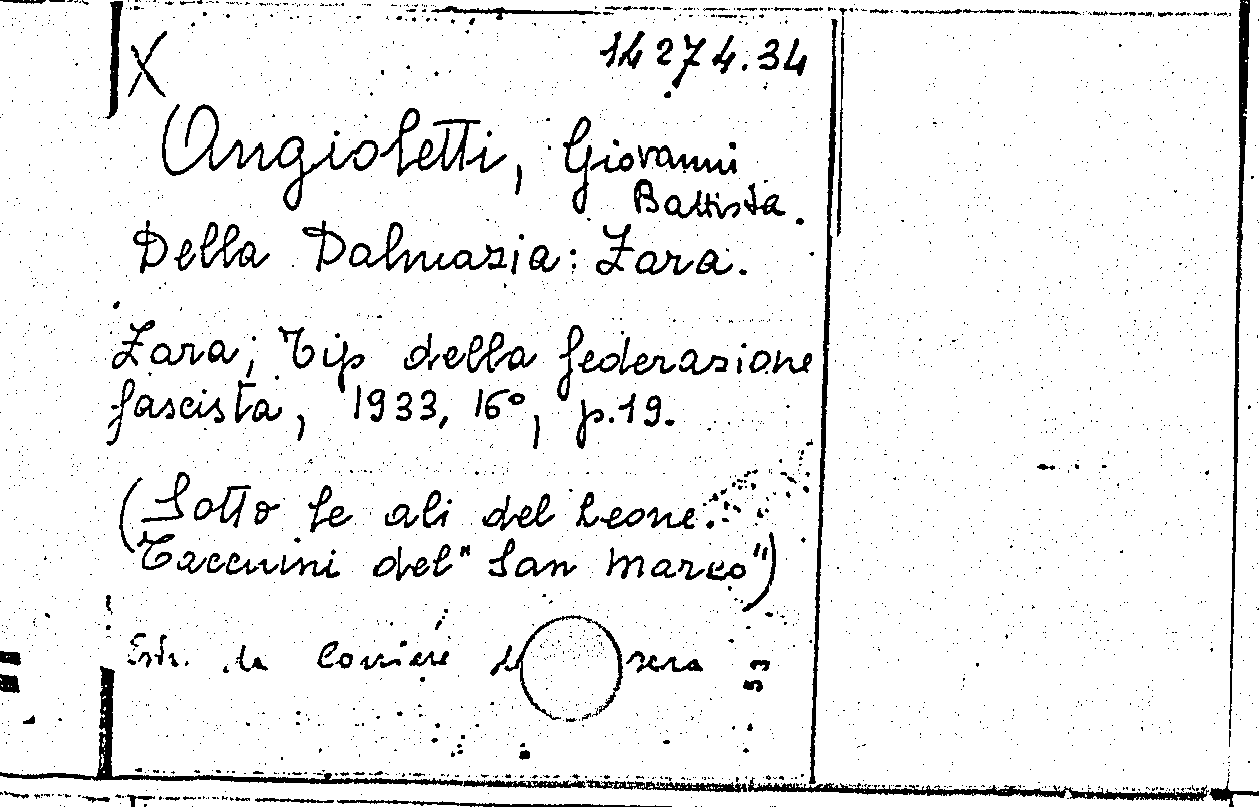 X
14274.34
Angioletti, Giovanni
Battista.
Della Dalmazia: Zara.
Zara, Tip della federazione
fascista, 1933, 16°, p.19.
(Sotto le ali del Leone.
Taccuini del "San Marco")
Estr. da Corriere sera